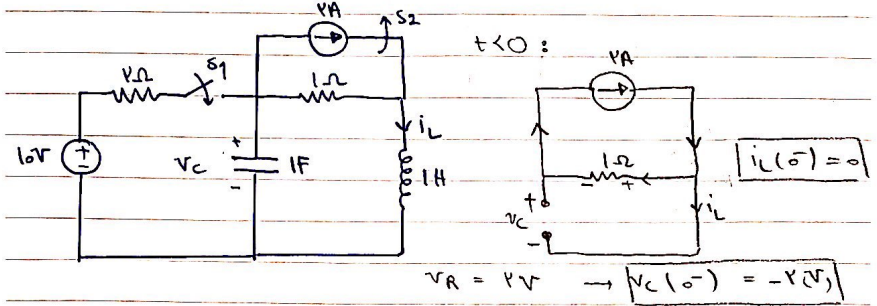 ۲A
S2
۲Ω
S1
1Ω
iL
10V
+
-
+
VC
-
1F
1H
t<0 :
۲A
1Ω
- +
iL(0⁻) = 0
iL
+
VC
-
VR = ۲V → VC(0⁻) = -۲(V)